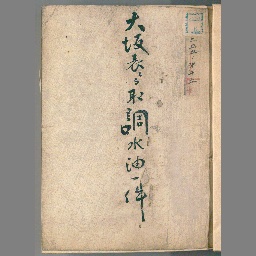 大坂表ゟ取調水油一件